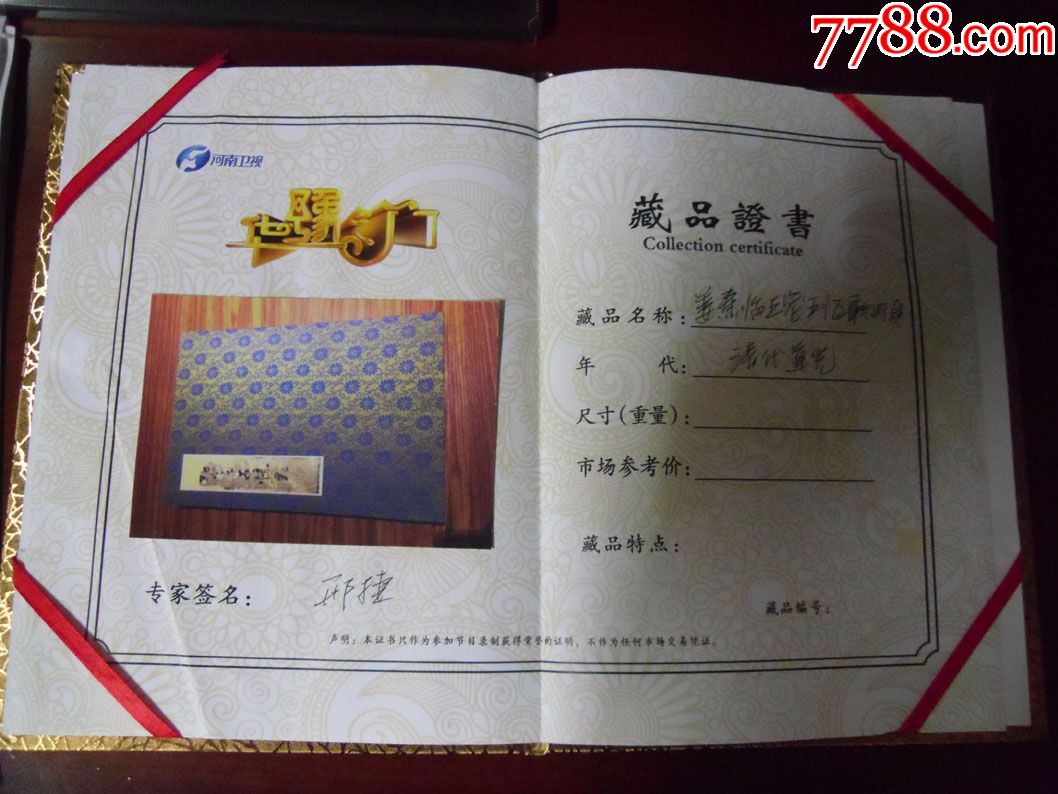 7788.com
河南卫视
华豫之门
专家签名：邢捷
声明：本证书只作为参加节目录制获得荣誉的证明，不作为任何市场交易凭证。
藏品證書
Collection certificate
藏品名称：
年　　代：清代
尺寸(重量)：
市场参考价：
藏品特点：
藏品编号：